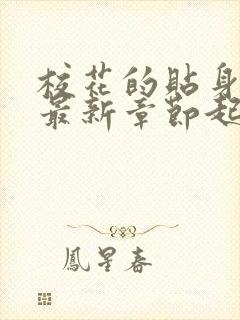 校花的貼身
最新章節起
鳳星春